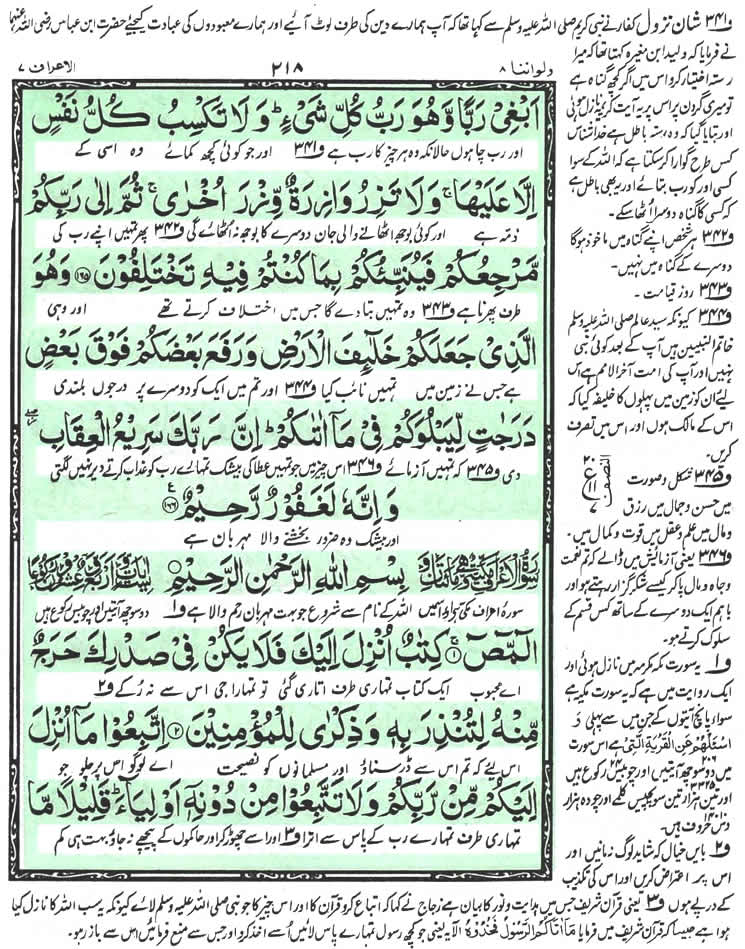 و۳۴۱ شان نزول کفار نے نبی کریم صلی اللہ علیہ وسلم سے کہا تھا کہ آپ ہمارے دین کی طرف لوٹ آیئے اور ہمارے معبودوں کی عبادت کیجئے حضرت ابن عباس رضی اللہ عنہما
ولو اننا ۸
۲۱۸
الاعراف ۷
اَبْغِیْ رَبًّا وَّهُوَ رَبُّ كُلِّ شَیْءٍ ؕ وَ لَا تَكْسِبُ كُلُّ نَفْسٍ
اور رب چاہوں حالانکہ وہ ہر چیز کا رب ہے و۳۴۱ اور جو کوئی کچھ کمائے وہ اسی کے
اِلَّا عَلَیْهَا ۚ وَ لَا تَزِرُ وَازِرَةٌ وِّزْرَ اُخْرٰی ۚ ثُمَّ اِلٰی رَبِّكُمْ
ذمہ ہے اور کوئی بوجھ اٹھانے والی جان دوسرے کا بوجھ نہ اٹھائے گی و۳۴۲ پھر تمہیں اپنے رب کی
مَّرْجِعُكُمْ فَیُنَبِّئُكُمْ بِمَا كُنْتُمْ فِیْهِ تَخْتَلِفُوْنَ ۱۶۵ وَهُوَ
طرف پھرنا ہے و۳۴۳ وہ تمہیں بتا دے گا جس میں اختلاف کرتے تھے اور وہی
الَّذِیْ جَعَلَكُمْ خَلٰٓىِٕفَ الْاَرْضِ وَ رَفَعَ بَعْضَكُمْ فَوْقَ بَعْضٍ
ہے جس نے زمین میں تمہیں نائب کیا و۳۴۴ اور تم میں ایک کو دوسرے پر درجوں بلندی
دَرَجٰتٍ لِّیَبْلُوَكُمْ فِیْ مَاۤ اٰتٰىكُمْ ؕ اِنَّ رَبَّكَ سَرِیْعُ الْعِقَابِ
دی و۳۴۵ کہ تمہیں آزمائے و۳۴۶ اس چیز میں جو تمہیں عطا کی بیشک تمہارے رب کو عذاب کرتے دیر نہیں لگتی
وَ اِنَّهٗ لَغَفُوْرٌ رَّحِیْمٌ ۱۶۶
اور بیشک وہ ضرور بخشنے والا مہربان ہے
بِسْمِ اللّٰهِ الرَّحْمٰنِ الرَّحِیْمِ
سورۂ اعراف مکی ہے اللہ کے نام سے شروع جو بہت مہربان رحم والا ہے و۱ دو سو چھ آیتیں اور چوبیس رکوع ہیں
الٓمّٓصٓ ۱ كِتٰبٌ اُنْزِلَ اِلَیْكَ فَلَا یَكُنْ فِیْ صَدْرِكَ حَرَجٌ
اے محبوب ایک کتاب تمہاری طرف اتاری گئی تو تمہارا جی اس سے نہ رُکے و۲
مِّنْهُ لِتُنْذِرَ بِهٖ وَ ذِكْرٰی لِلْمُؤْمِنِیْنَ ۲ اِتَّبِعُوْا مَاۤ اُنْزِلَ
اس لیے کہ تم اس سے ڈر سناؤ اور مسلمانوں کو نصیحت اے لوگو اس پر چلو جو
اِلَیْكُمْ مِّنْ رَّبِّكُمْ وَ لَا تَتَّبِعُوْا مِنْ دُوْنِهٖۤ اَوْلِیَآءَ ؕ قَلِیْلًا مَّا
تمہاری طرف تمہارے رب کے پاس سے اترا و۳ اور اسے چھوڑ کر اور حاکموں کے پیچھے نہ جاؤ بہت ہی کم
نے فرمایا کہ ولید ابن مغیرہ کہتا تھا کہ میرا
رستہ اختیار کرو اس میں اگر کچھ گناہ ہے
تو میری گردن پر اس پر یہ آیت کریمہ نازل ہوئی
اور بتایا گیا کہ وہ رستہ باطل ہے خدا شناس
کس طرح گوارا کر سکتا ہے کہ اللہ کے سوا
کسی اور کو رب بتائے اور یہ بھی باطل ہے
کہ کسی کا گناہ دوسرا اُٹھا سکے۔
و۳۴۲ ہر شخص اپنے گناہ میں ماخوذ ہوگا
دوسرے کے گناہ میں نہیں۔
و۳۴۳ روز قیامت ۔
و۳۴۴ کیونکہ سید عالم صلی اللہ علیہ وسلم
خاتم النبیین ہیں آپ کے بعد کوئی نبی
نہیں اور آپ کی امت آخر الامم ہے اس
لئے ان کو زمین میں پہلوں کا خلیفہ کیا کہ
اس کے مالک ہوں اور اس میں تصرف
کریں۔
و۳۴۵ شکل و صورت
میں حسن و جمال میں رزق
و مال میں علم و عقل میں قوت و کمال میں۔
و۳۴۶ یعنی آزمائش میں ڈالے کہ تم نعمت
و جاہ و مال پا کر کیسے شکر گزار رہتے ہو اور
باہم ایک دوسرے کے ساتھ کس قسم کے
سلوک کرتے ہو۔
و۱ یہ سورت مکہ مکرمہ میں نازل ہوئی اور
ایک روایت میں ہے کہ یہ سورت مکیہ ہے
سوا پانچ آیتوں کے جن میں سے پہلی وَ
اسْئَلْهُمْ عَنِ الْقَرْیَةِ الَّتِیْ ہے اس سورت
میں دو سو چھ ۲۰۶ آیتیں اور چوبیس ۲۴ رکوع ہیں
اور تین ہزار تین سو پچیس ۳۳۲۵ کلمے اور چودہ ہزار
دس ۱۴۰۱۰ حروف ہیں۔
و۲ بایں خیال کہ شاید لوگ نہ مانیں اور
اس پر اعتراض کریں اور اس کی تکذیب
کے درپے ہوں و۳ یعنی قرآن شریف جس میں ہدایت و نور کا بیان ہے زجاج نے کہا کہ اتباع کرو قرآن کا اور اس چیز کا جو نبی صلی اللہ علیہ وسلم لائے کیونکہ یہ سب اللہ کا نازل کیا
ہوا ہے جیسا کہ قرآن شریف میں فرمایا مَآ اٰتٰكُمُ الرَّسُوْلُ فَخُذُوْهُ الآیہ یعنی جو کچھ رسول تمہارے پاس لائیں اُسے اخذ کرو اور جس سے منع فرمائیں اس سے باز رہو۔